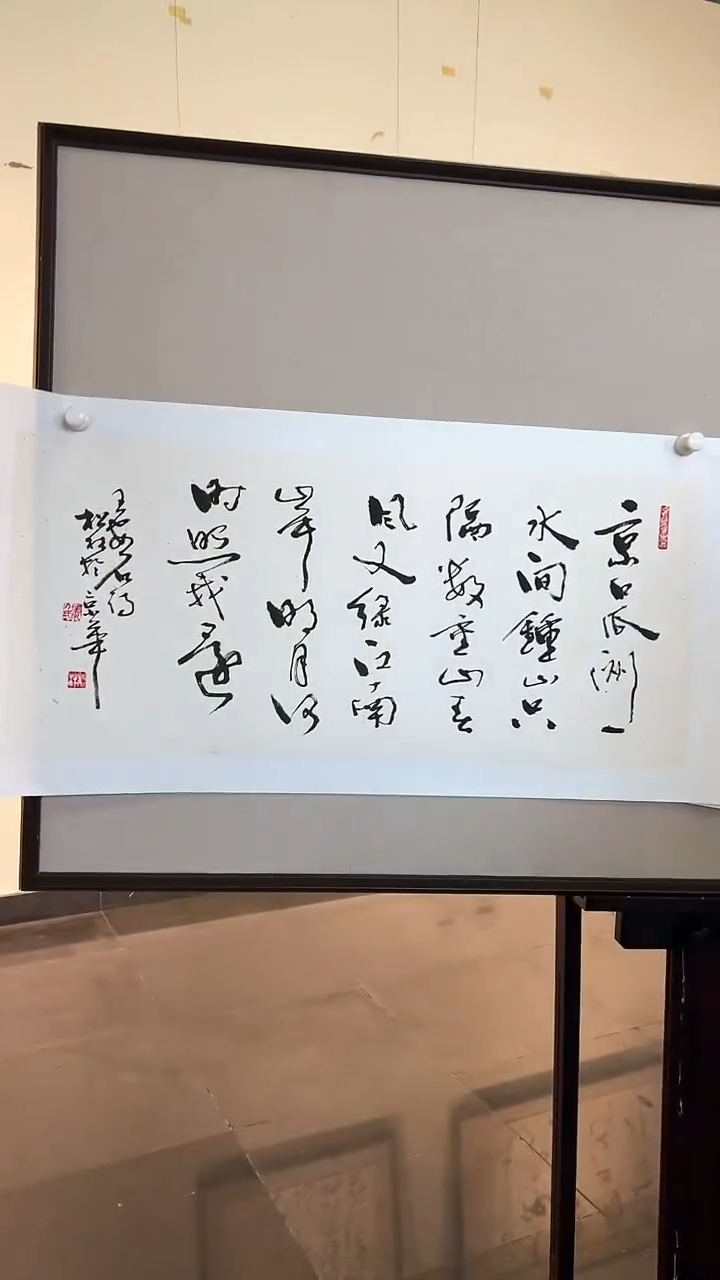 京口瓜洲一
水间鍾山只
隔数重山春
风又绿江南
岸明月何
时照我還
王安石诗
松 於京華